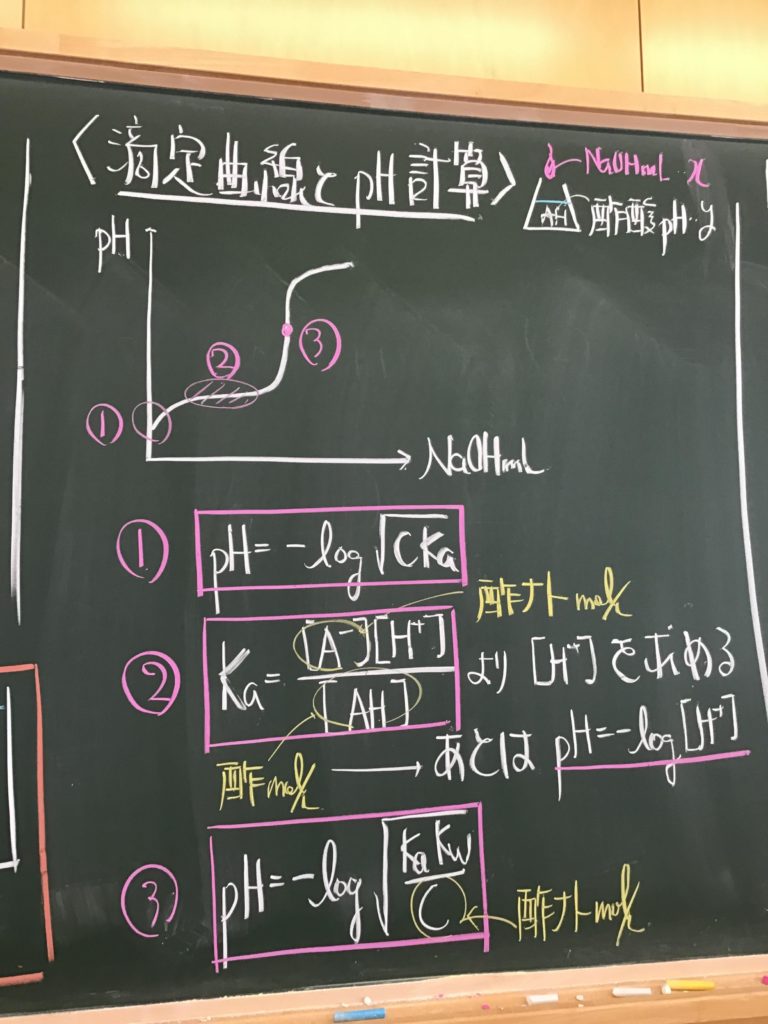 〈滴定曲線とpH計算〉
NaOHmL x
AH 酢酸 pH y
pH
②
③
①
NaOHmL
① pH=-log√CKa
酢ナトmol/L
② Ka=[A⁻][H⁺]/[AH] より [H⁺]を求める
酢mol/L → あとは pH=-log[H⁺]
③ pH=-log√KaKw/C
酢ナトmol/L